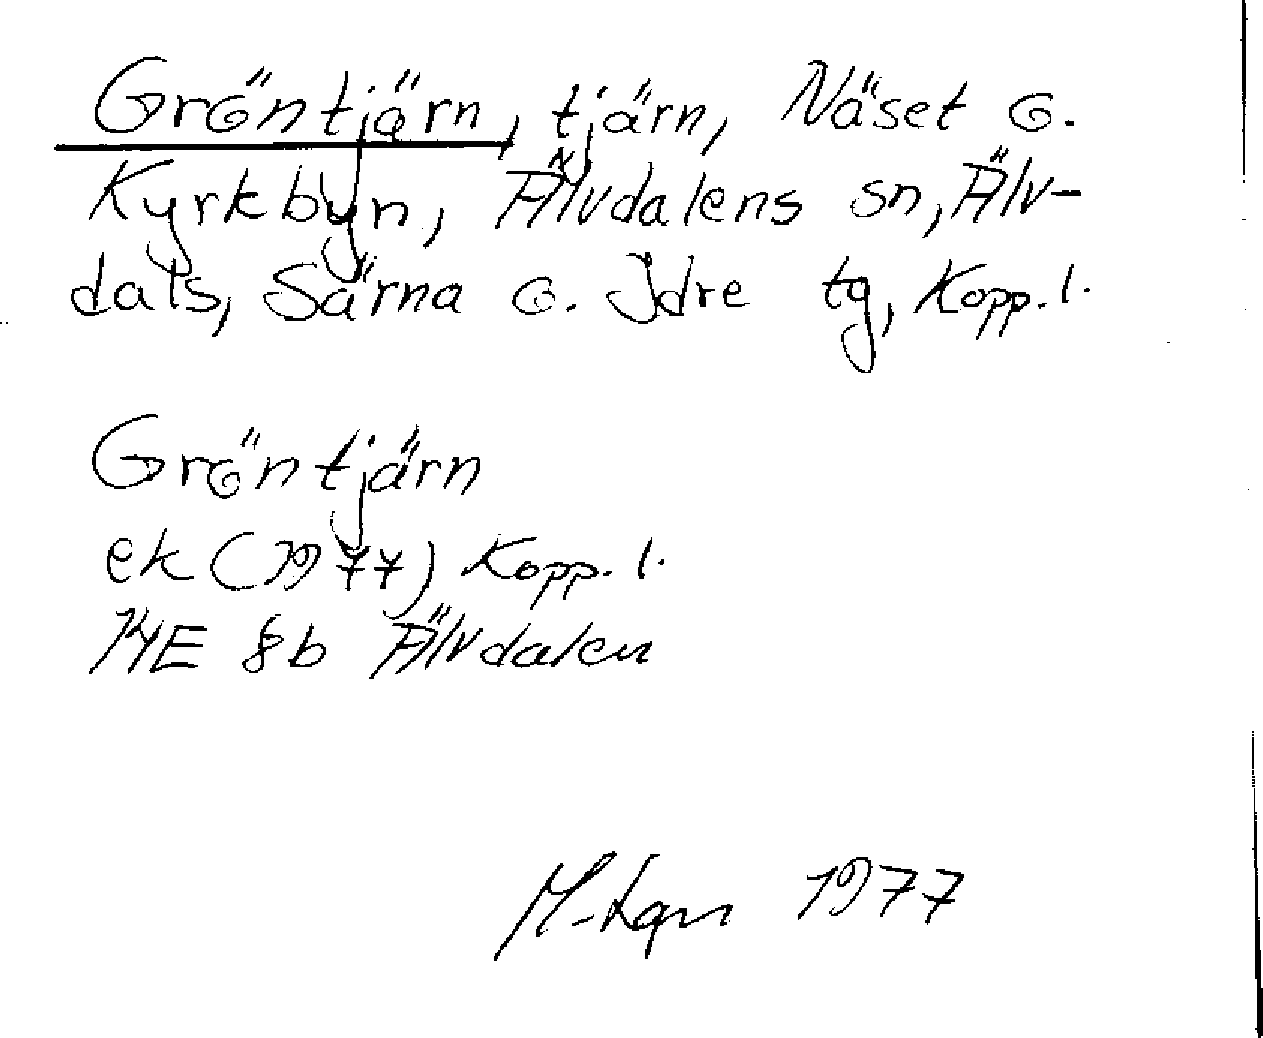 Gröntjärn, tjärn, Näset o.
Kyrkbyn, Älvdalens sn, Älv-
dals, Särna o. Idre tg, Kopp. l.
Gröntjärn
ek (1977) Kopp. l.
14E 8b Älvdalen
1977